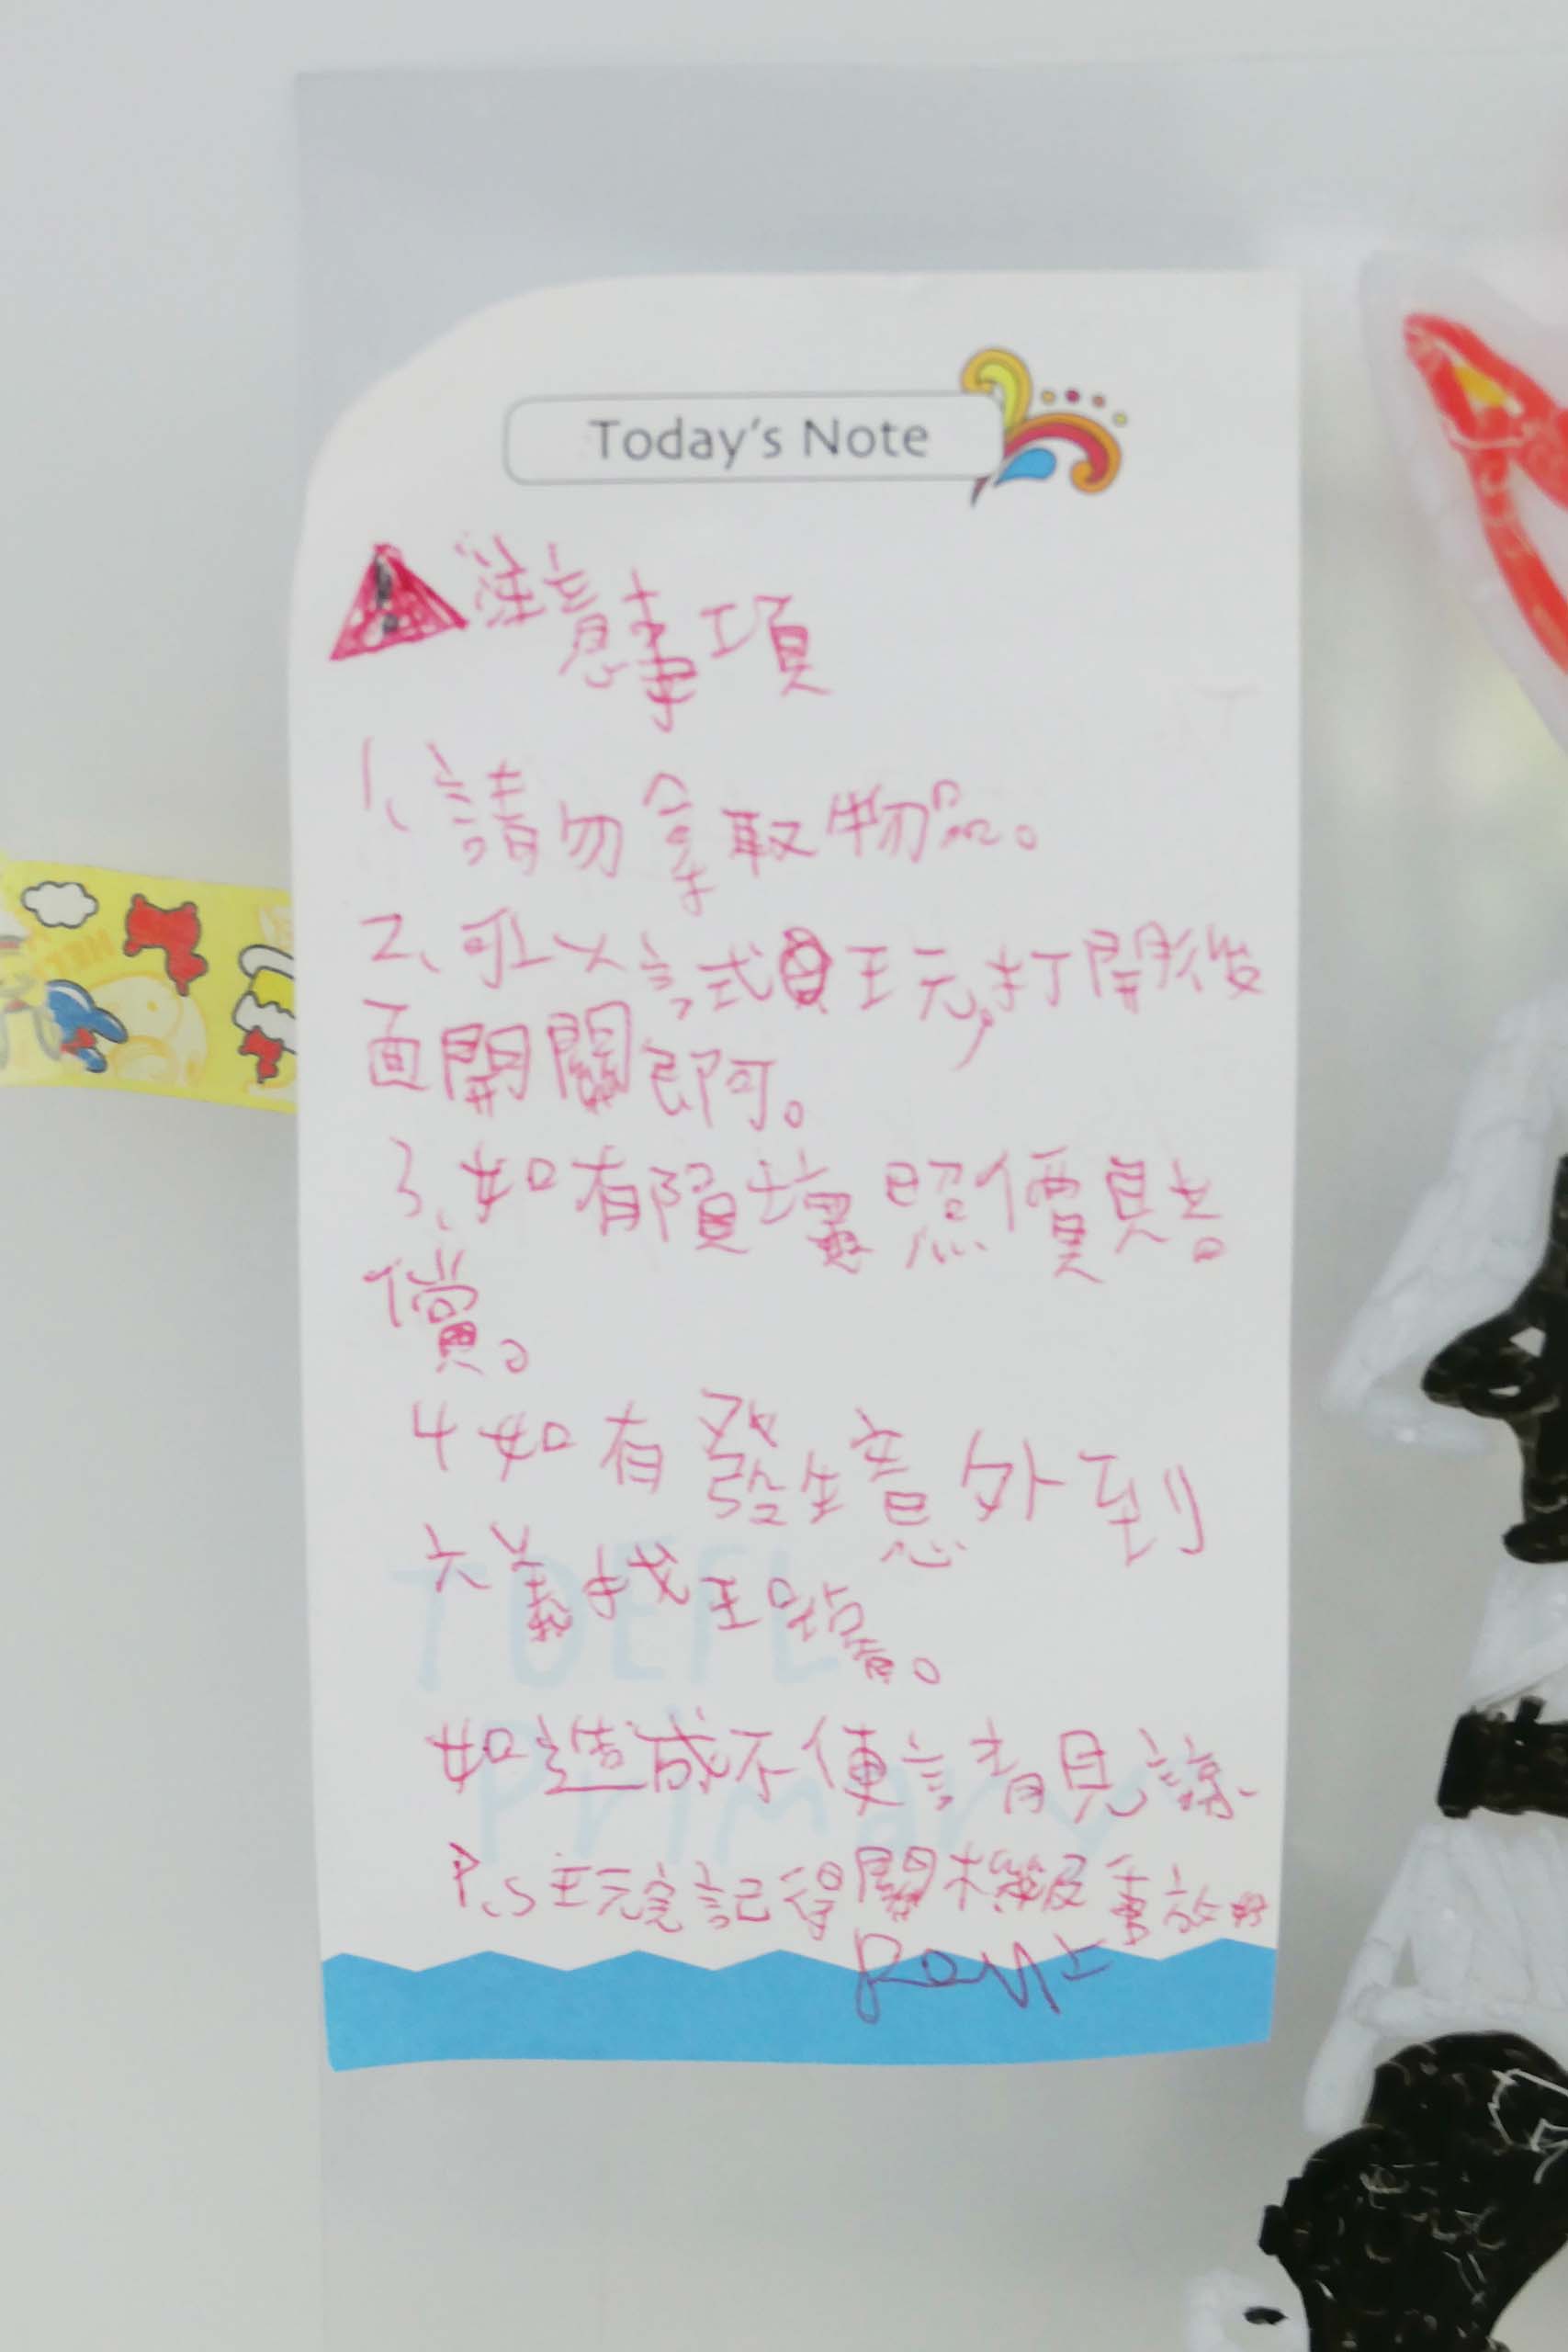 Today's Note
注意事項
1、請勿拿取物品。
2、可以試玩,打開後
面開關即可。
3、如有損壞照價賠
償。
4 如有發生意外到
六義找
如造成不便請見諒
P.S玩完記得關機及放好
TOEFL
Primary